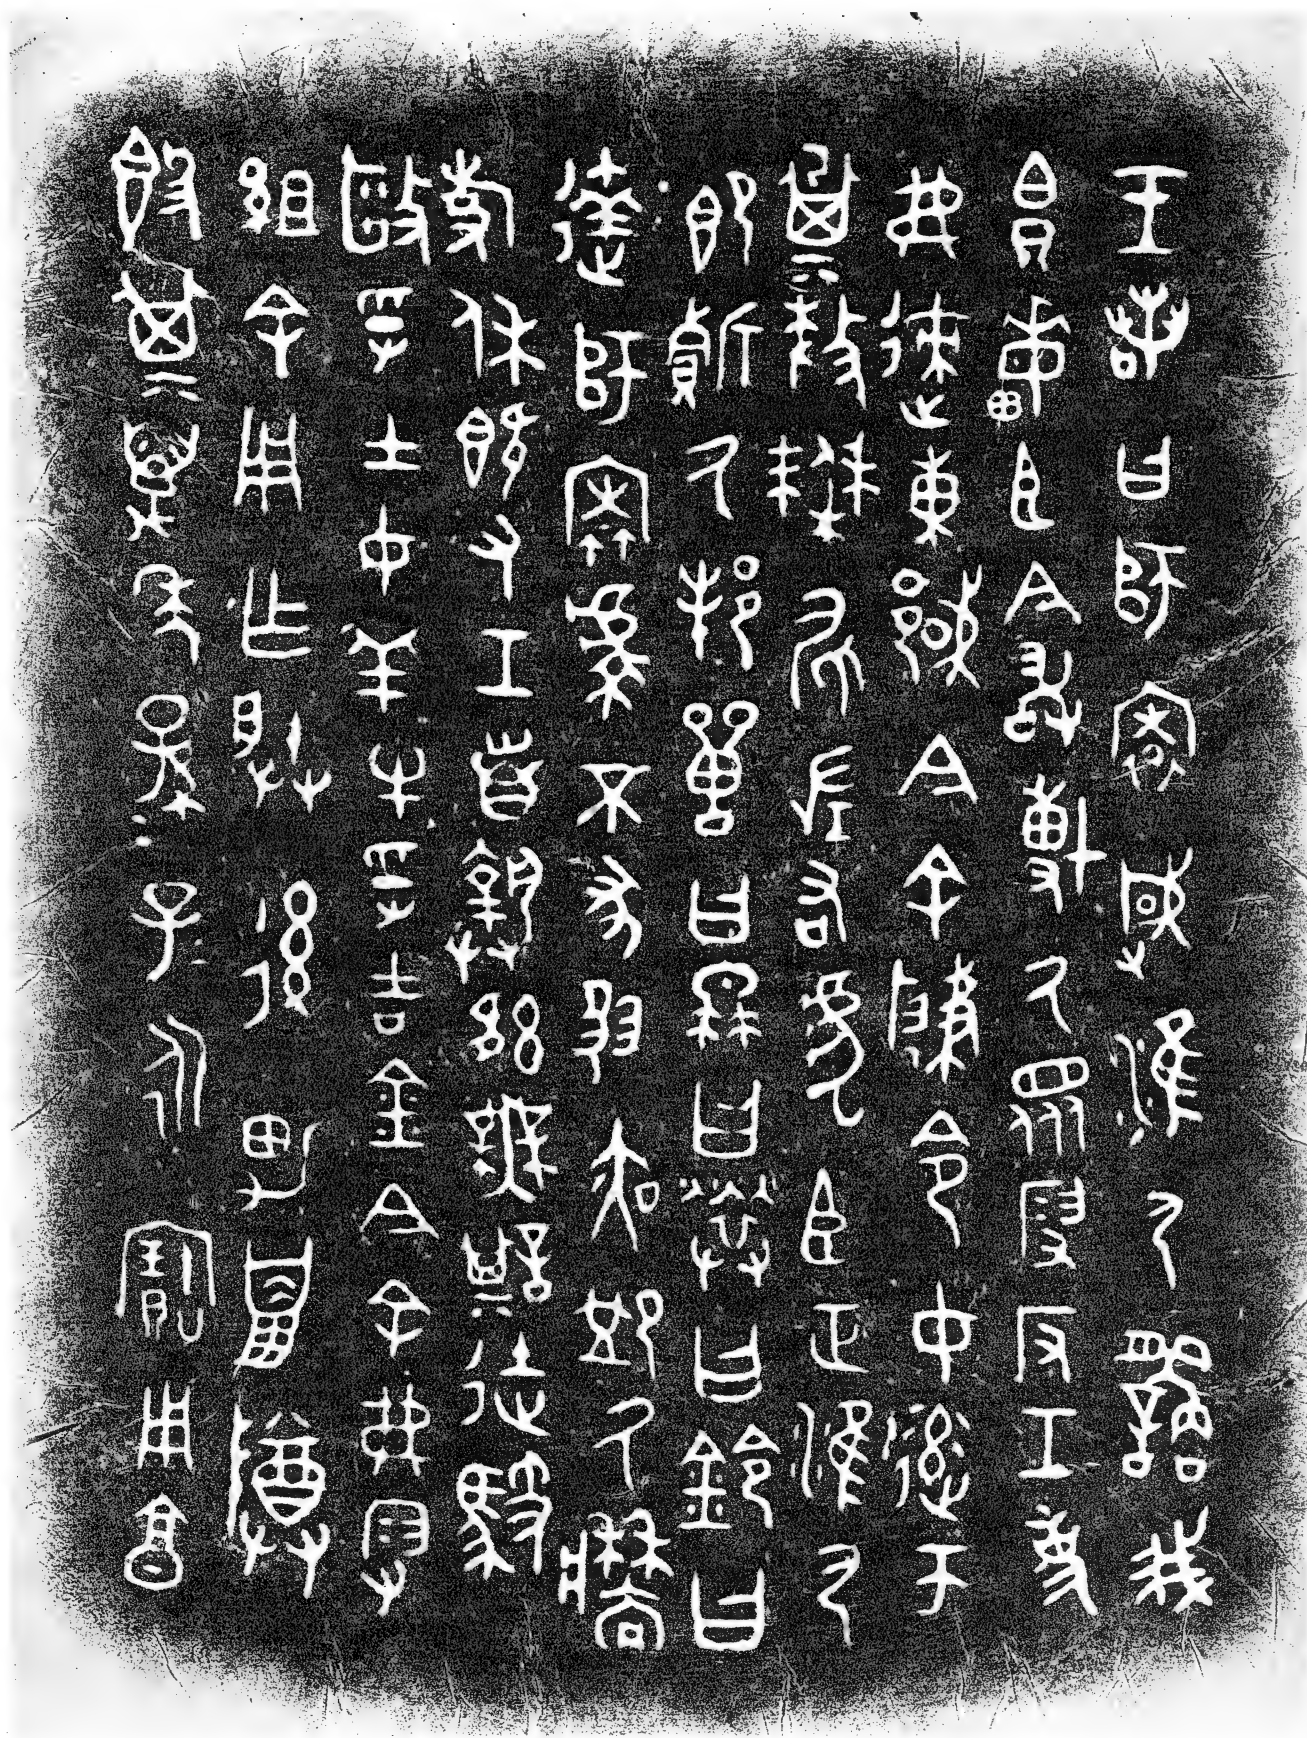 王若曰師𡩜淮尸繇我
帛畮臣今敢博厥眾叚反工吏
弗速東國今余肇令女達帀
釐僰左右虎臣正淮尸
即厥邦獸曰冉曰曰鈴曰
達師虔不彖夙夜卹厥牆
事休既又工折首執訊無諆徒馭
毆孚士女羊牛孚吉金今余弗叚
組余用乍朕後男巤尊
簋其萬年孫子永寶用享